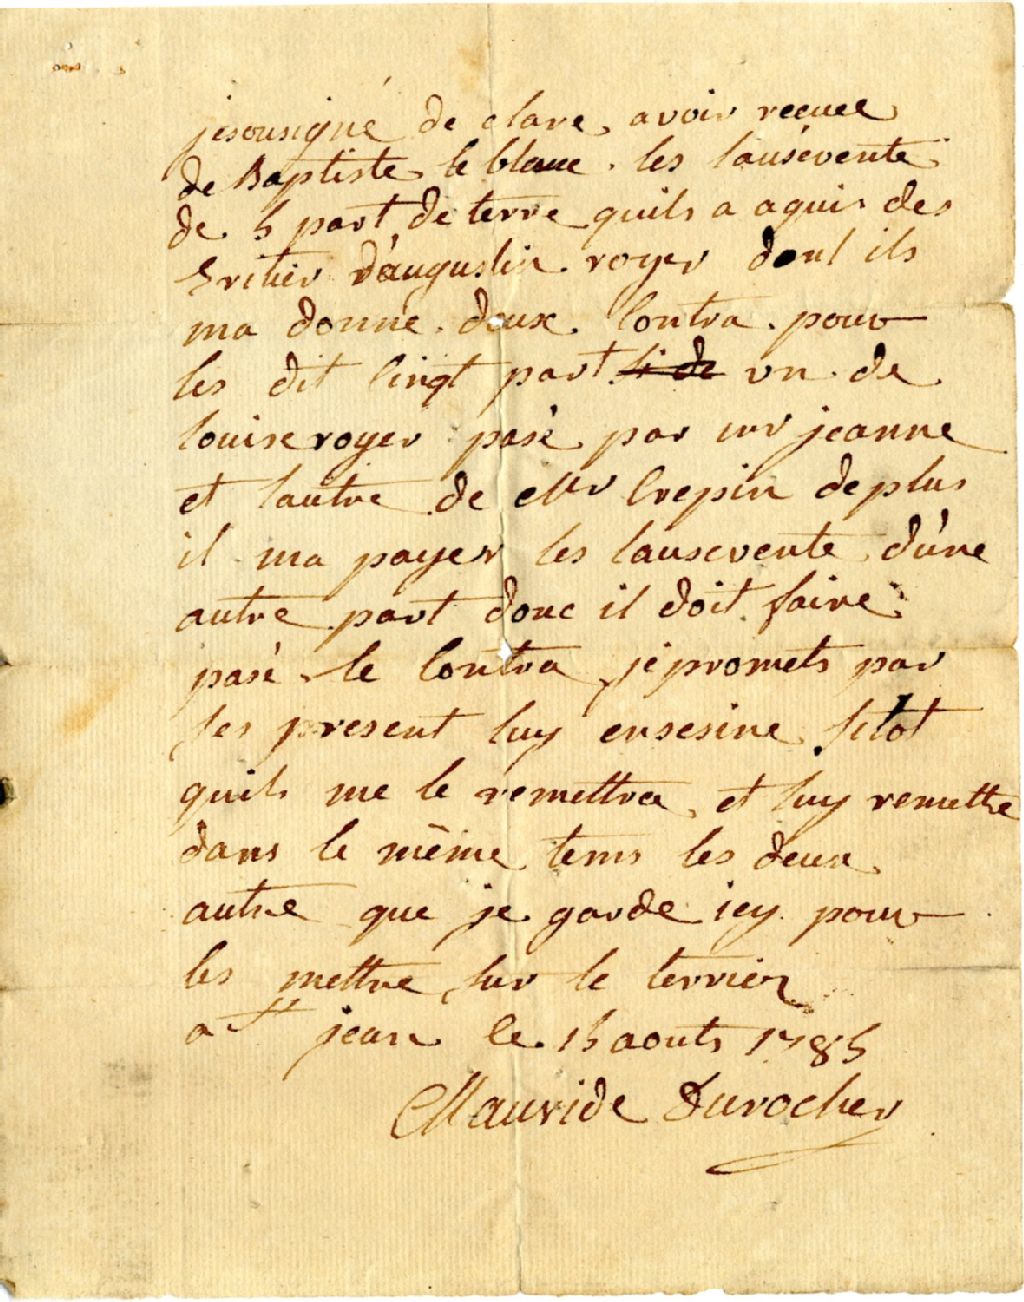 jesousigné de clare avoir recuee
de Baptiste le blanc les lausévente
de 5 part de terre quils a aquis des
Eritier d'augustin royer dont ils
ma donne deux Contra pour
les dit Cinqt part un de
louise royer pasé par mr jeanne
et lautre de Mr Crepin deplus
il ma payer les lausevente d'une
autre part donc il doit faire
pasé le Contra jepromets par
ses present luy ensesine sitot
quils me le remettra et luy remettre
dans le même tems les deux
autre que je garde icy pour
les mettre sur le terrier
a st jean le 15 aouts 1785
Mauride Durocher